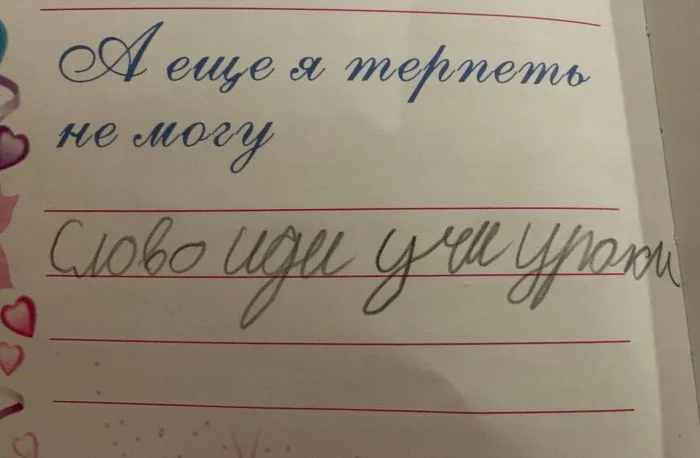 А еще я терпеть
не могу
Слово иди учи уроки